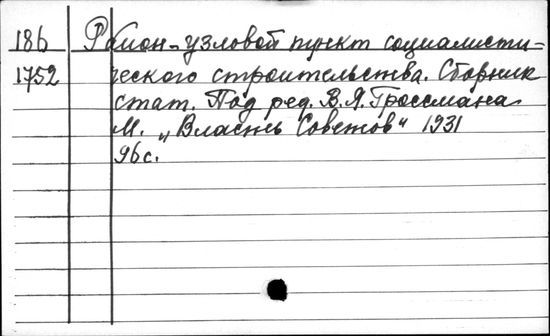 186 Район-узловой пункт социалисти-
1752 ческого строительства. Сборник
стат. Под ред. В.Я. Гроссмана
М. „Власть Советов“ 1931
96с.